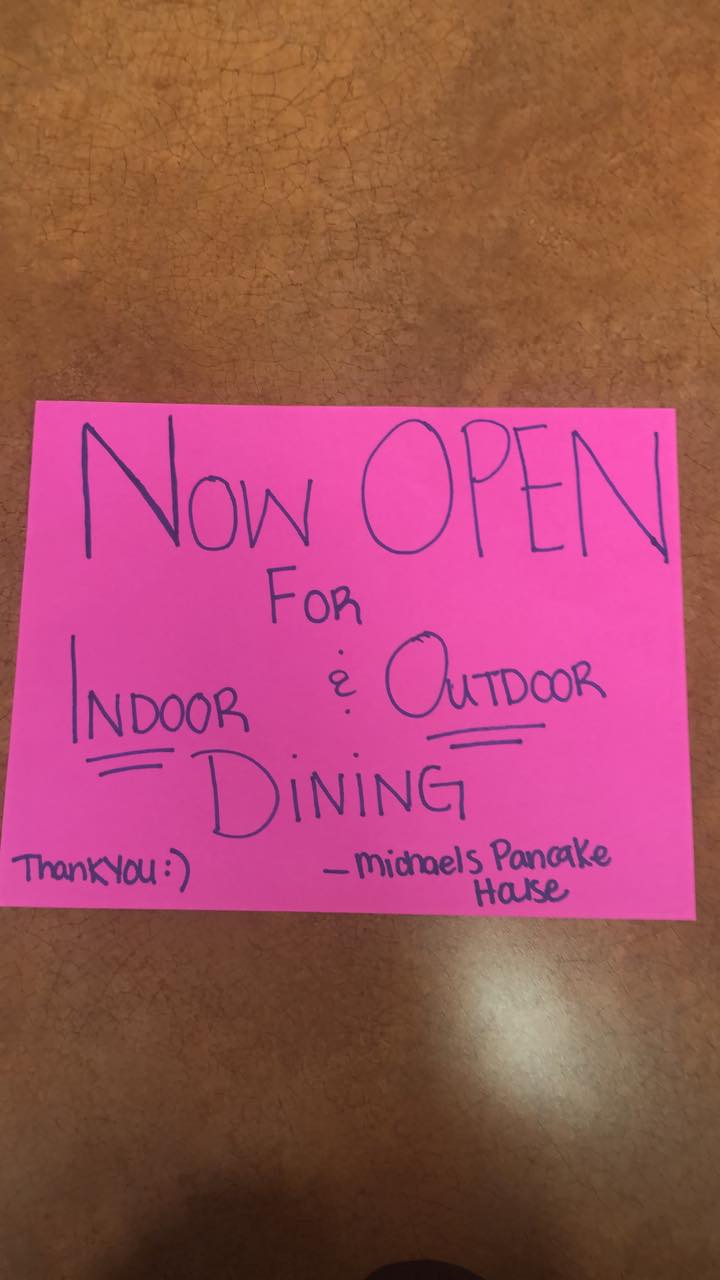 NOW OPEN
FOR
INDOOR & OUTDOOR
DiNiNG
ThankYou :) – Michaels Pancake
House